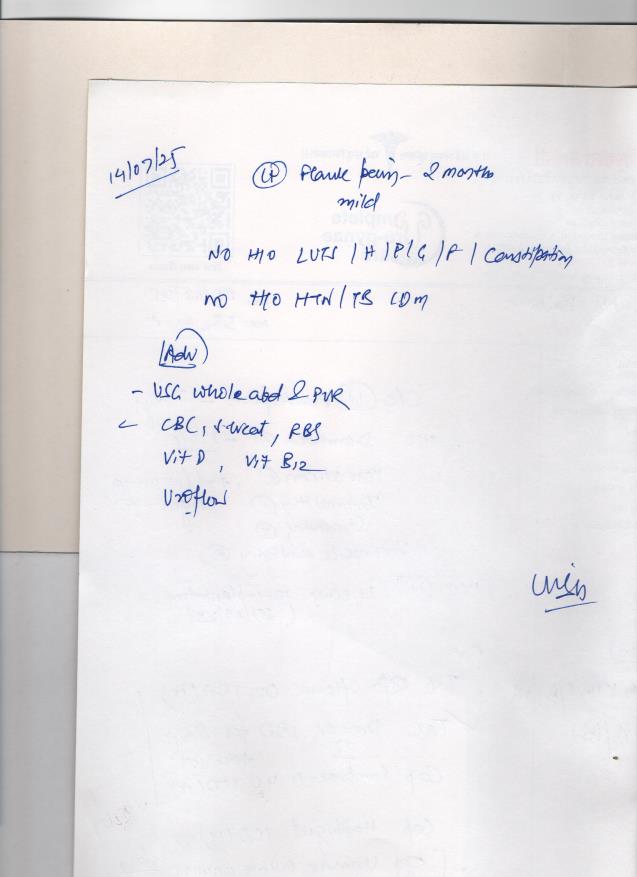 14/07/25
(LT) Flank pain - 2 months
mild
NO H/O LUTS / H / P / G / F / Constipation
NO H/O HTN / TB / DM
Adv
- USG whole abd & PVR
CBC, S. creat, RBS
Vit D, Vit B12
Uroflow